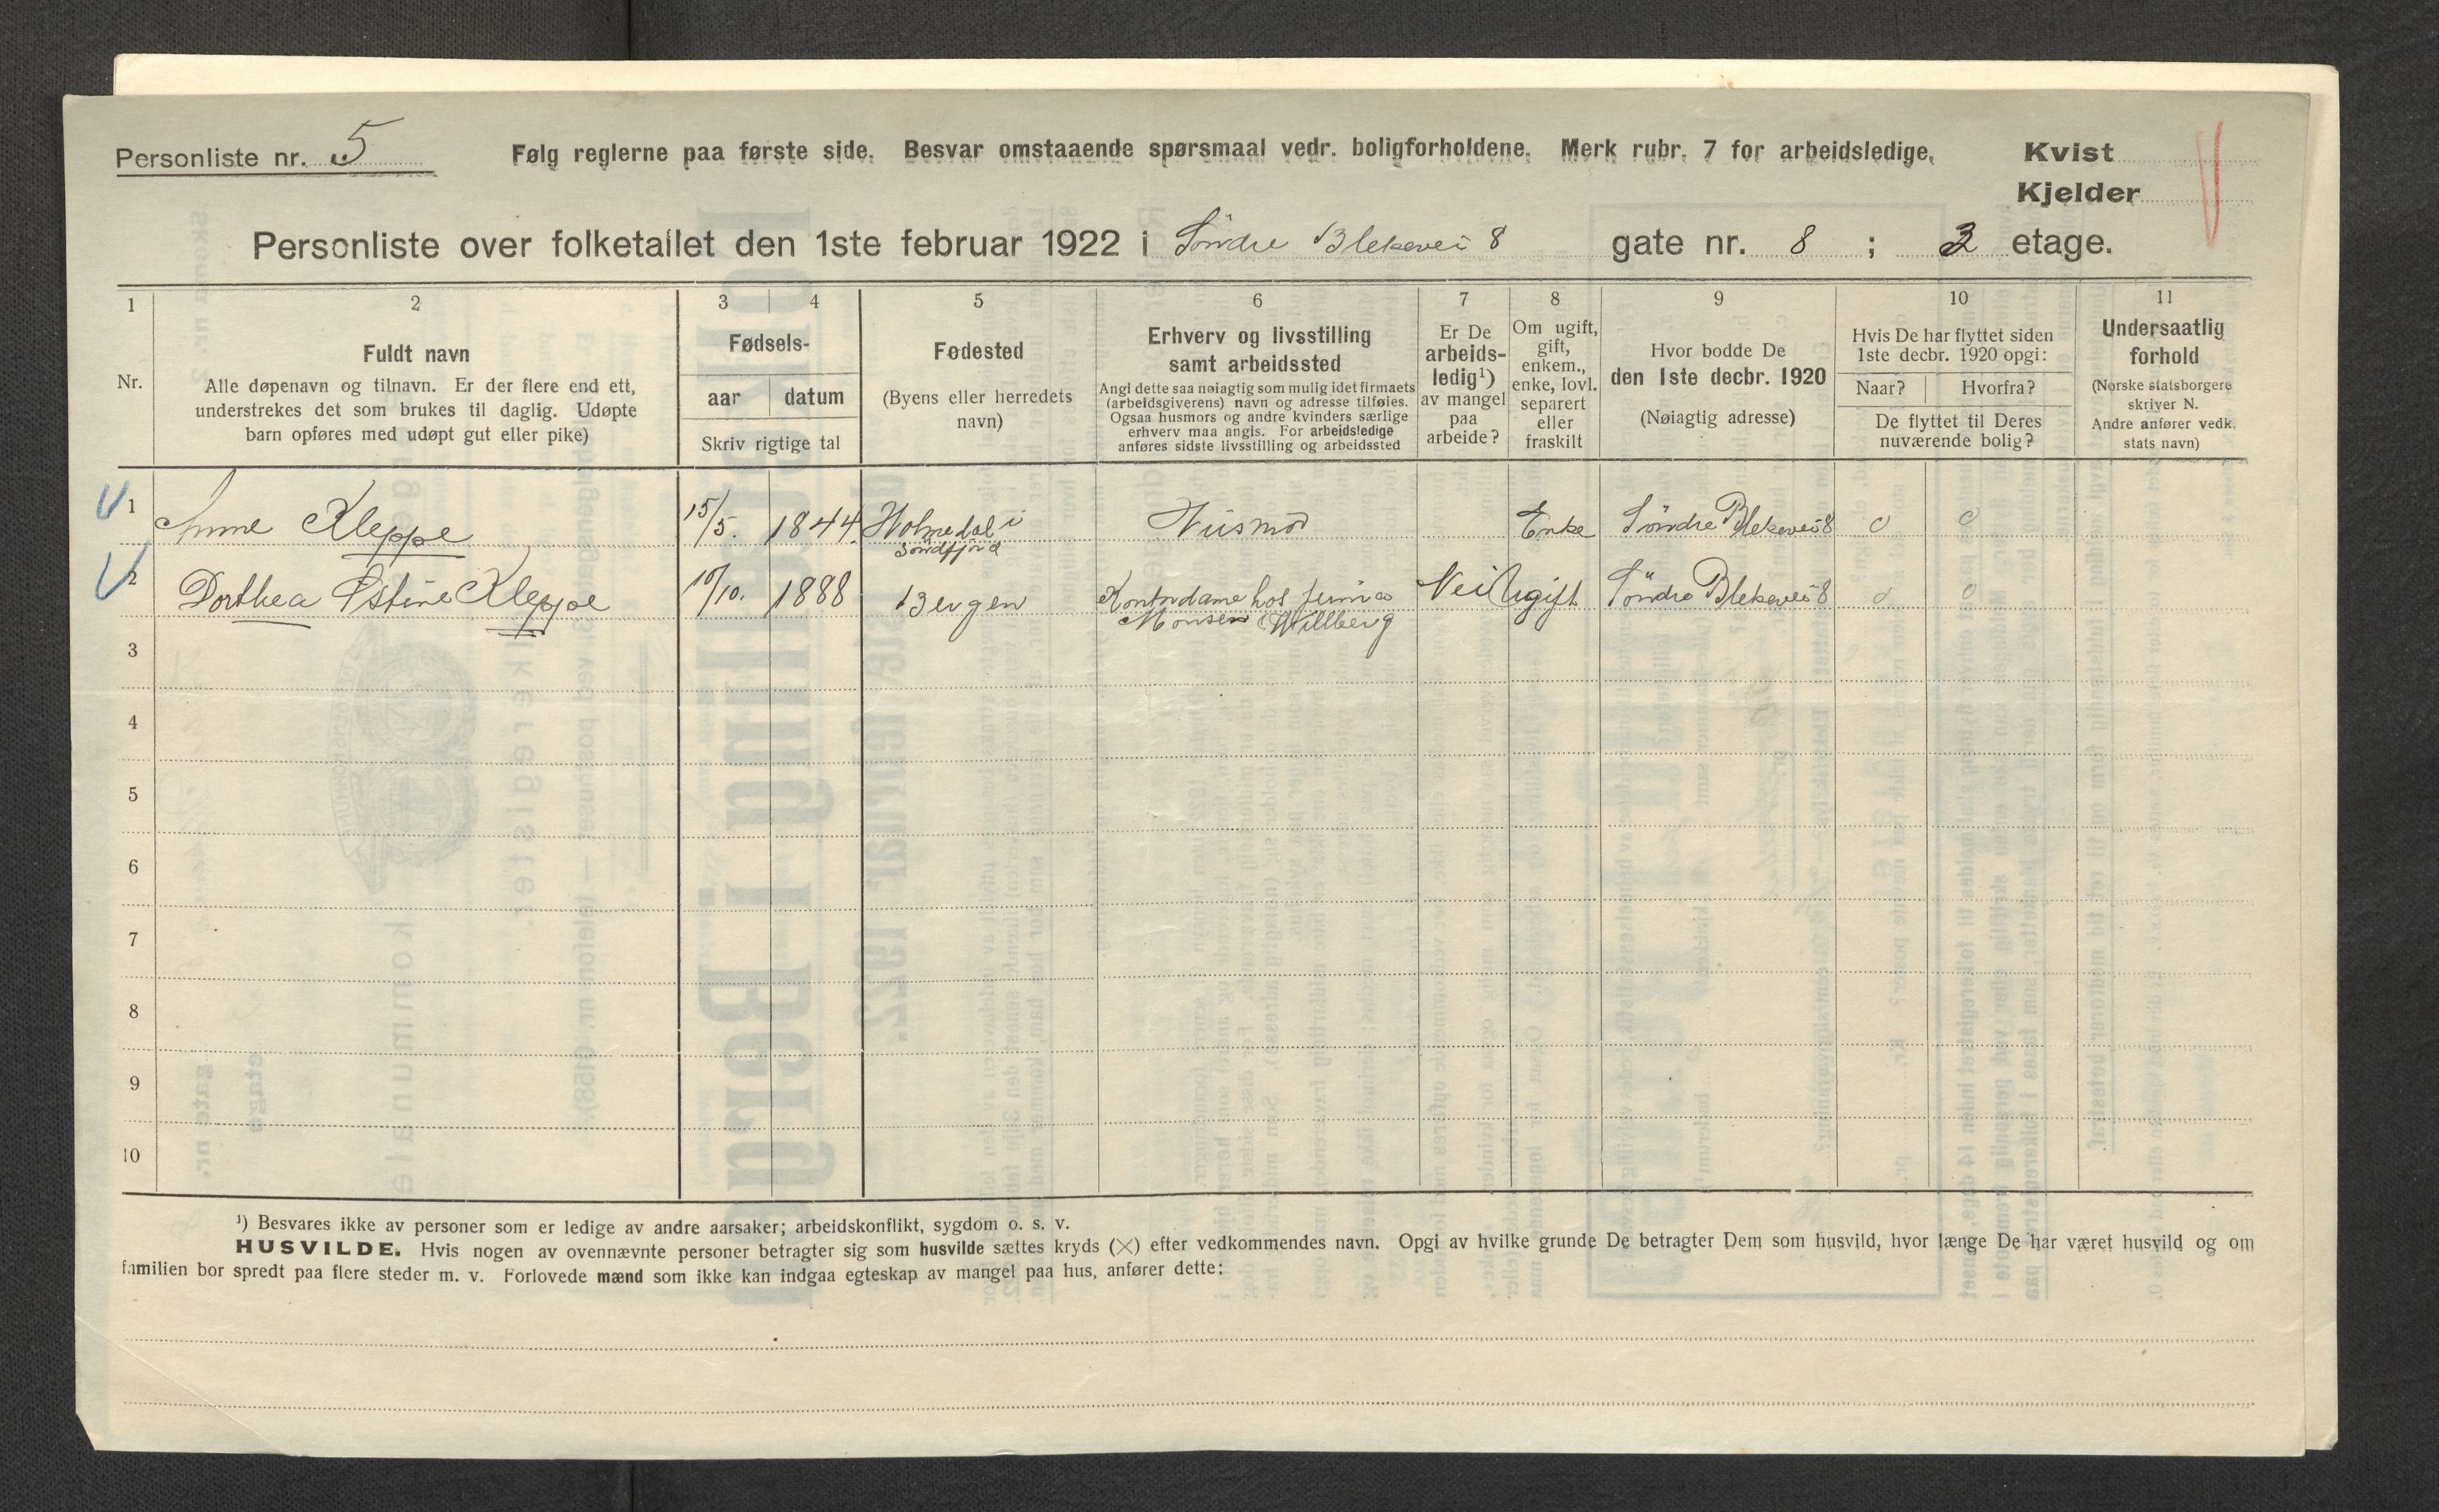 Personliste nr. 5
Følg reglerne paa første side. Besvar omstaaende spørsmaal vedr. boligforholdene. Merk rubr. 7 for arbeidsledige.
Kvist
Kjelder
Personliste over folketallet den 1ste februar 1922 i Søndre Blekevei 8 gate nr. 8 ; 2 etage.
1 2 3 4 5 6 7 8 9 10 11
Nr.
Fuldt navn
Alle døpenavn og tilnavn. Er der flere end ett,
understrekes det som brukes til daglig. Udøpte
barn opføres med udøpt gut eller pike)
Fødsels-
aar datum
Skriv rigtige tal
Fødested
(Byens eller herredets
navn)
Erhverv og livsstilling
samt arbeidssted
Angi dette saa nøiagtig som mulig idet firmaets
(arbeidsgiverens) navn og adresse tilføies.
Ogsaa husmors og andre kvinders særlige
erhverv maa angis. For arbeidsledige
anføres sidste livsstilling og arbeidssted
Er De
arbeids-
ledig¹)
av mangel
paa
arbeide?
Om ugift,
gift,
enkem.,
enke, lovl.
separert
eller
fraskilt
Hvor bodde De
den 1ste decbr. 1920
(Nøiagtig adresse)
Hvis De har flyttet siden
1ste decbr. 1920 opgi:
Naar? Hvorfra?
De flyttet til Deres
nuværende bolig?
Undersaatlig
forhold
(Norske statsborgere
skriver N.
Andre anfører vedk.
stats navn)
1 Anne Kleppe 15/5. 1844. Holmedal i Husmor Enke Søndre Blekevei 8 0 0
Søndfjord
2 Dorthea Kleppe 10/10. 1888 Bergen Kontordame hos firma Nei Ugift Søndre Blekevei 8 0 0
Monsen Willberg
3
4
5
6
7
8
9
10
¹) Besvares ikke av personer som er ledige av andre aarsaker; arbeidskonflikt, sygdom o. s. v.
HUSVILDE. Hvis nogen av ovennævnte personer betragter sig som husvilde sættes kryds (×) efter vedkommendes navn. Opgi av hvilke grunde De betragter Dem som husvild, hvor længe De har været husvild og om
familien bor spredt paa flere steder m. v. Forlovede mænd som ikke kan indgaa egteskap av mangel paa hus, anfører dette: